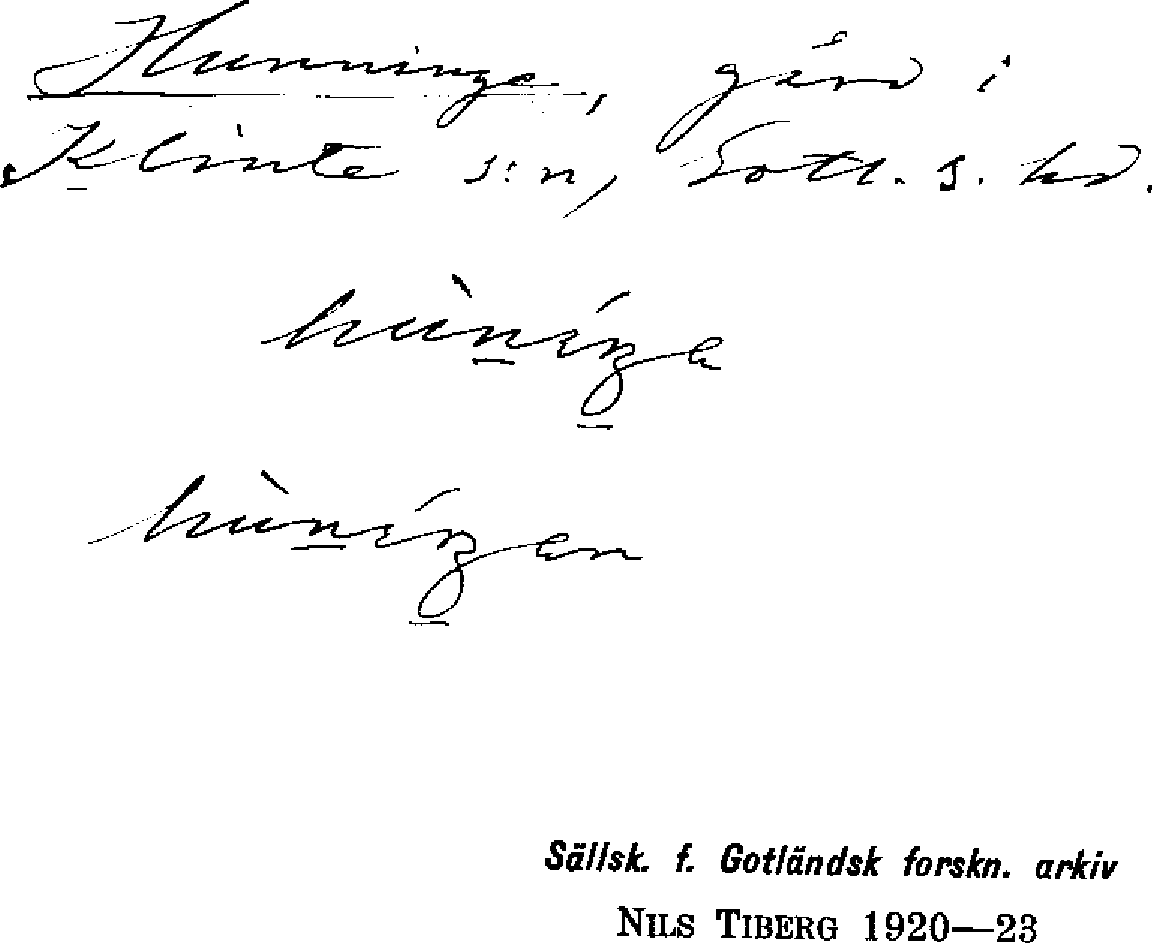 Hunninge, gård i
Klinte s:n, Gotl. s. hd.
hùníŋe
hùníŋen
Sällsk. f. Gotländsk forskn. arkiv
NILS TIBERG 1920—23